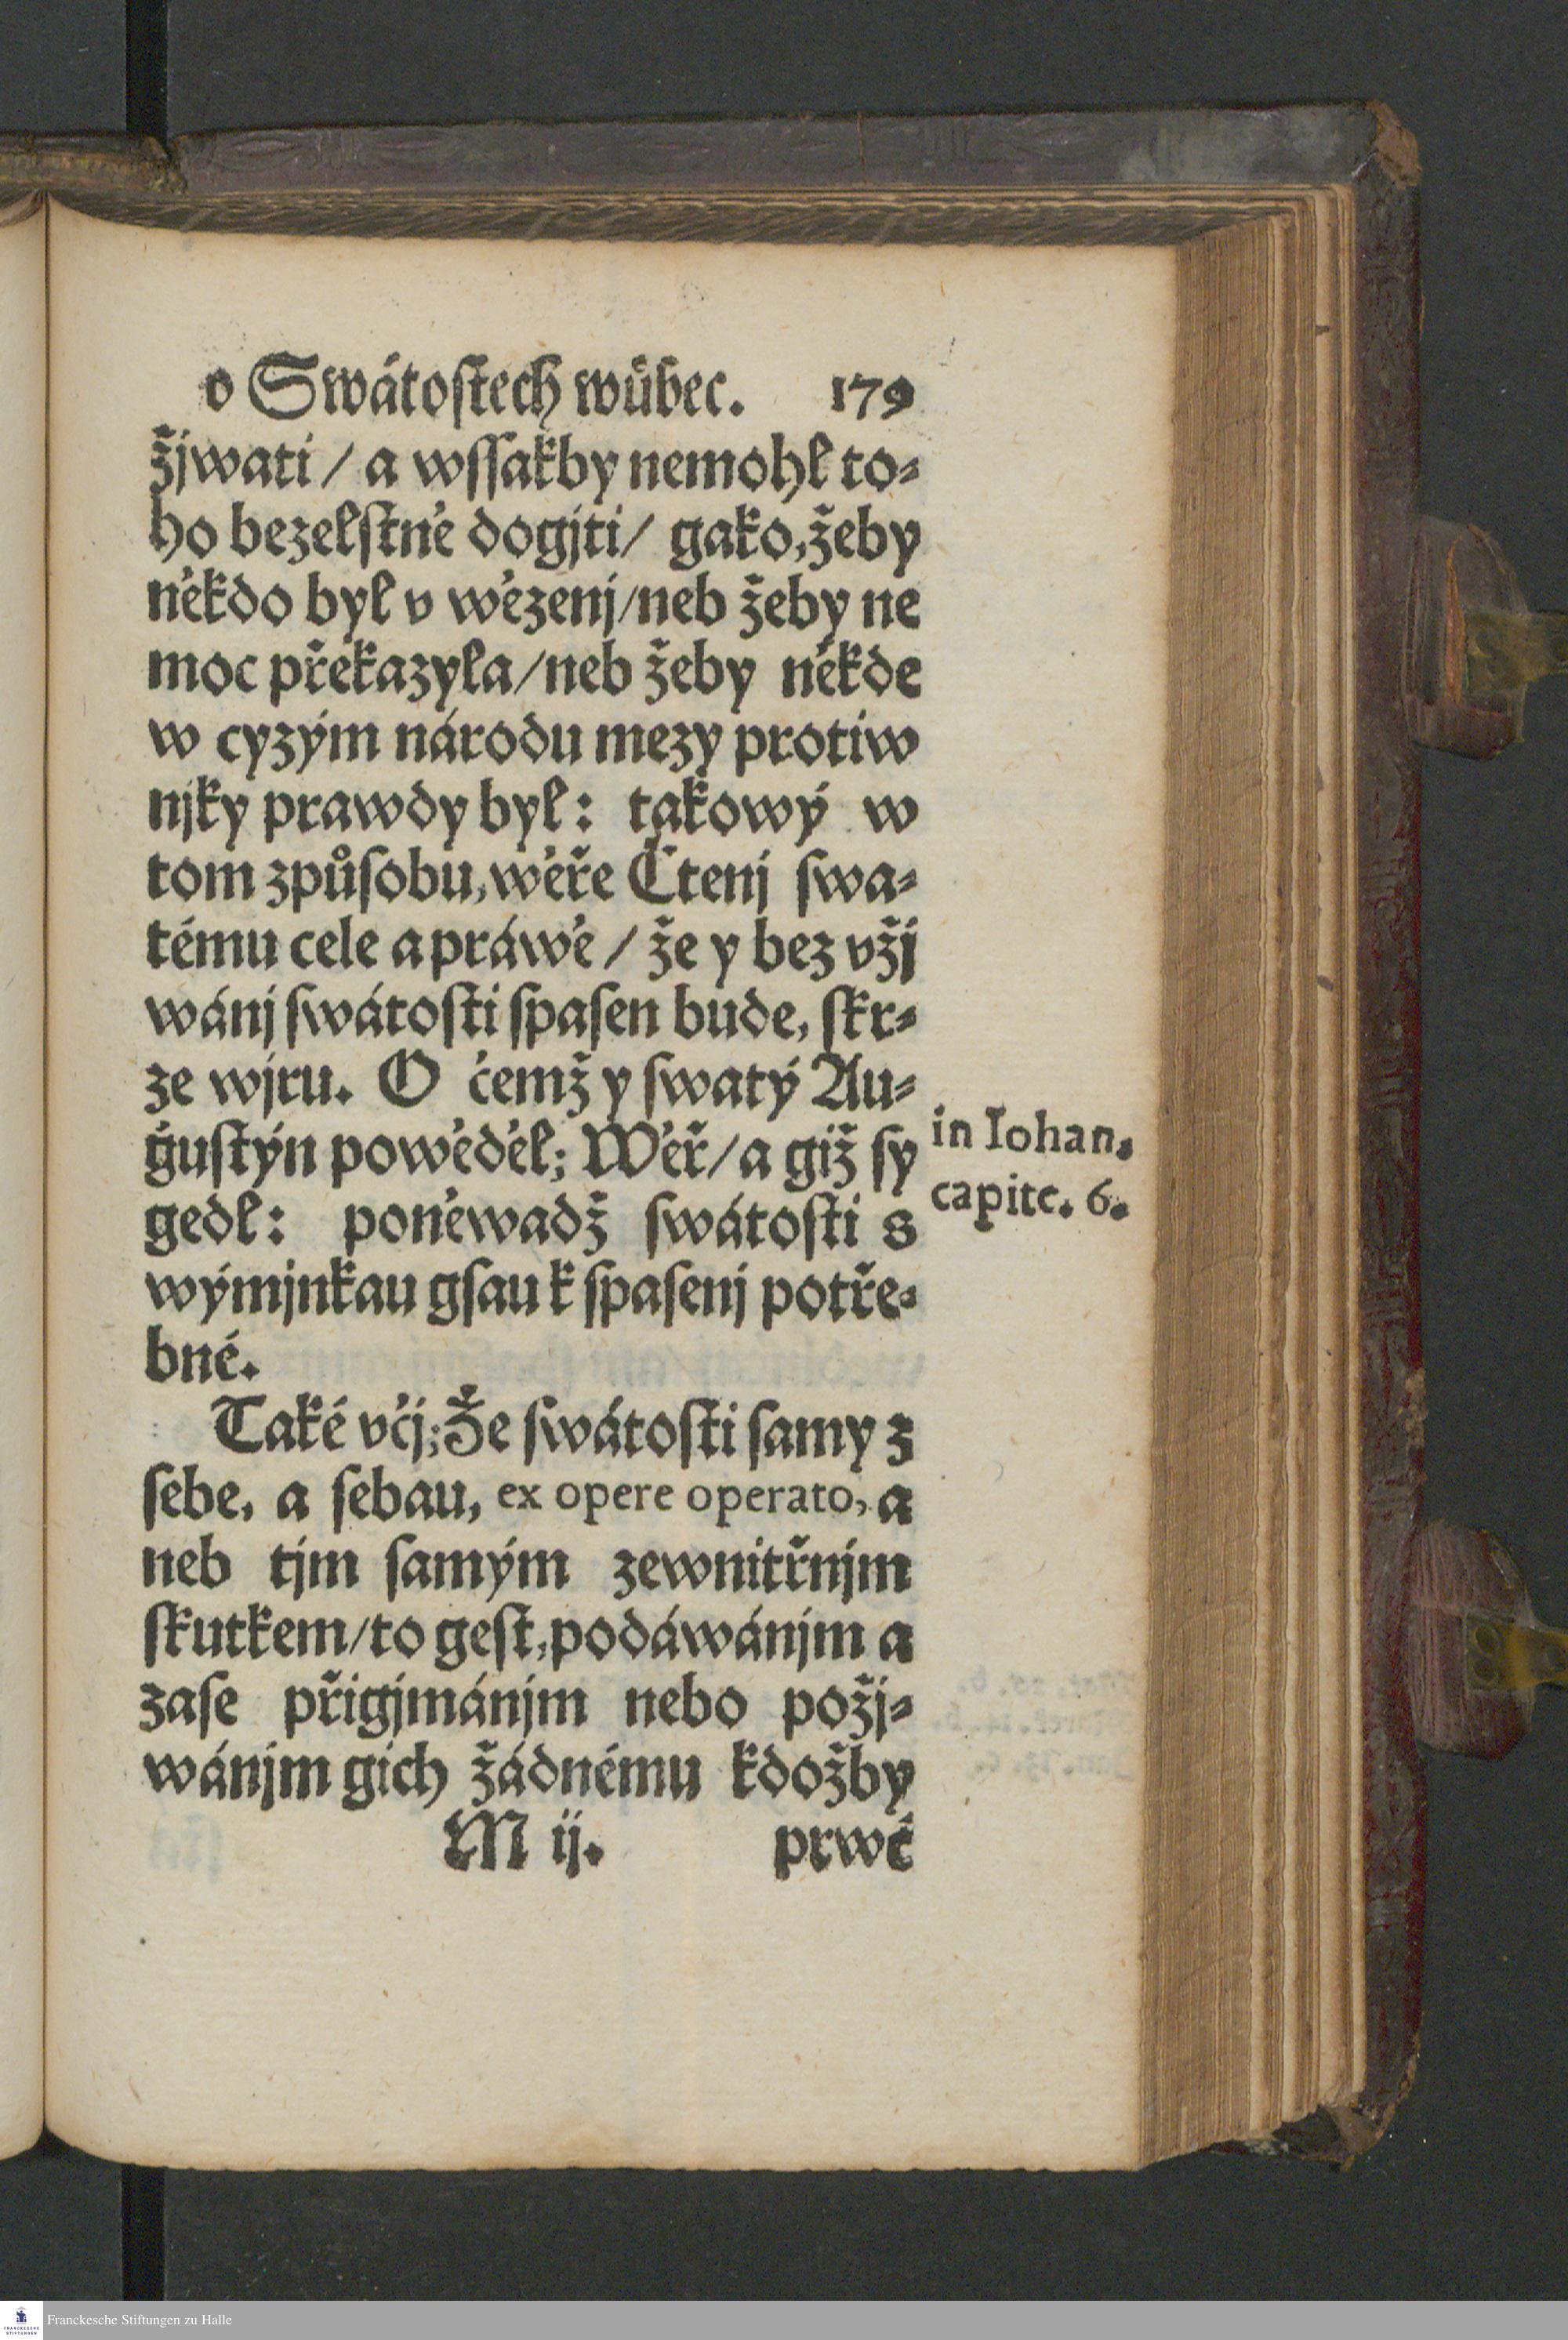 o Swátoſtech wůbec. 179
žjwati / a wſſakby nemohl to⸗
ho bezelſtně dogjti / gako, žeby
někdo byl v wězenj / neb žeby ne
moc překazyla / neb žeby někde
w cyzým národu mezy protiw
njky prawdy byl: takowý w
tom způſobu, wěře Čtenj ſwa⸗
tému cele a práwě / že y bez vžj
wánj ſwátoſti ſpaſen bude, ſkr⸗
ze wjru. O čemž y ſwatý Au⸗
in Iohan.
ǧuſtýn powěděl; Wěř / a giž ſy
capite. 6.
gedl: poněwadž ſwátoſti s
wýmjnkau gſau k ſpaſenj potře⸗
bné.
Také včj; Že ſwátoſti ſamy z
ſebe, a ſebau, ex opere operato, a
neb tjm ſamým zewnitřnjm
ſkutkem / to geſt, podáwánjm a
zaſe přigjmánjm nebo požj⸗
wánjm gich žádnému kdožby
M ij. prwé
Franckesche Stiftungen zu Halle